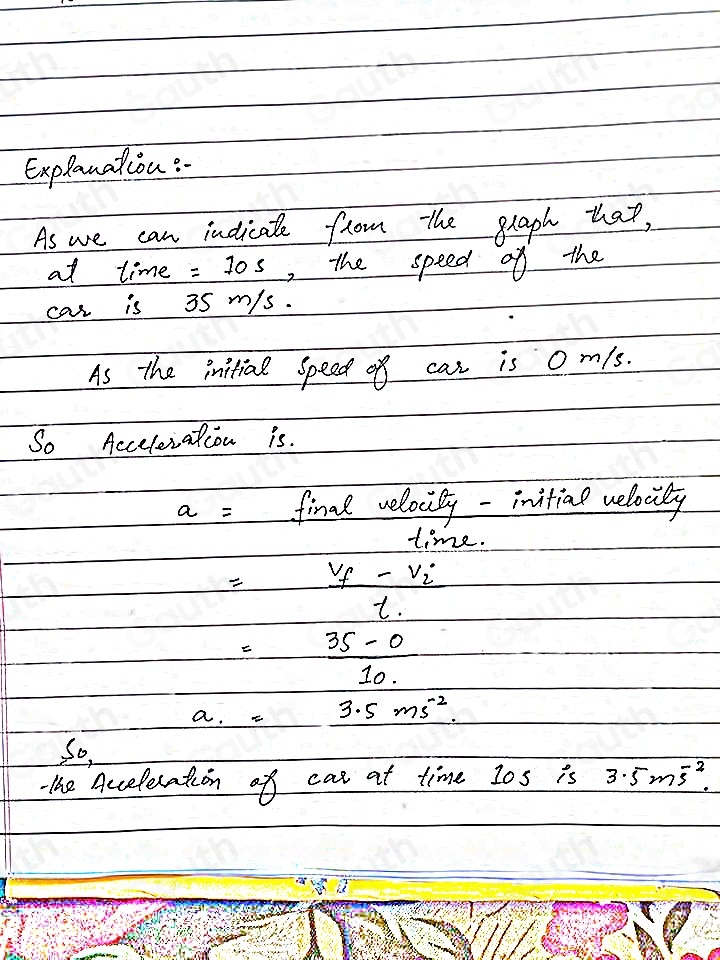 Explanation :-
As we can indicate from the graph that,
at time = 10 s, the speed of the
car is 35 m/s.
As the initial speed of car is 0 m/s.
So Acceleration is.
a = final velocity - initial velocity
time.
= Vf - Vi
t.
= 35 - 0
10.
a. = 3.5 ms⁻².
So,
the Acceleration of car at time 10s is 3.5 ms⁻².